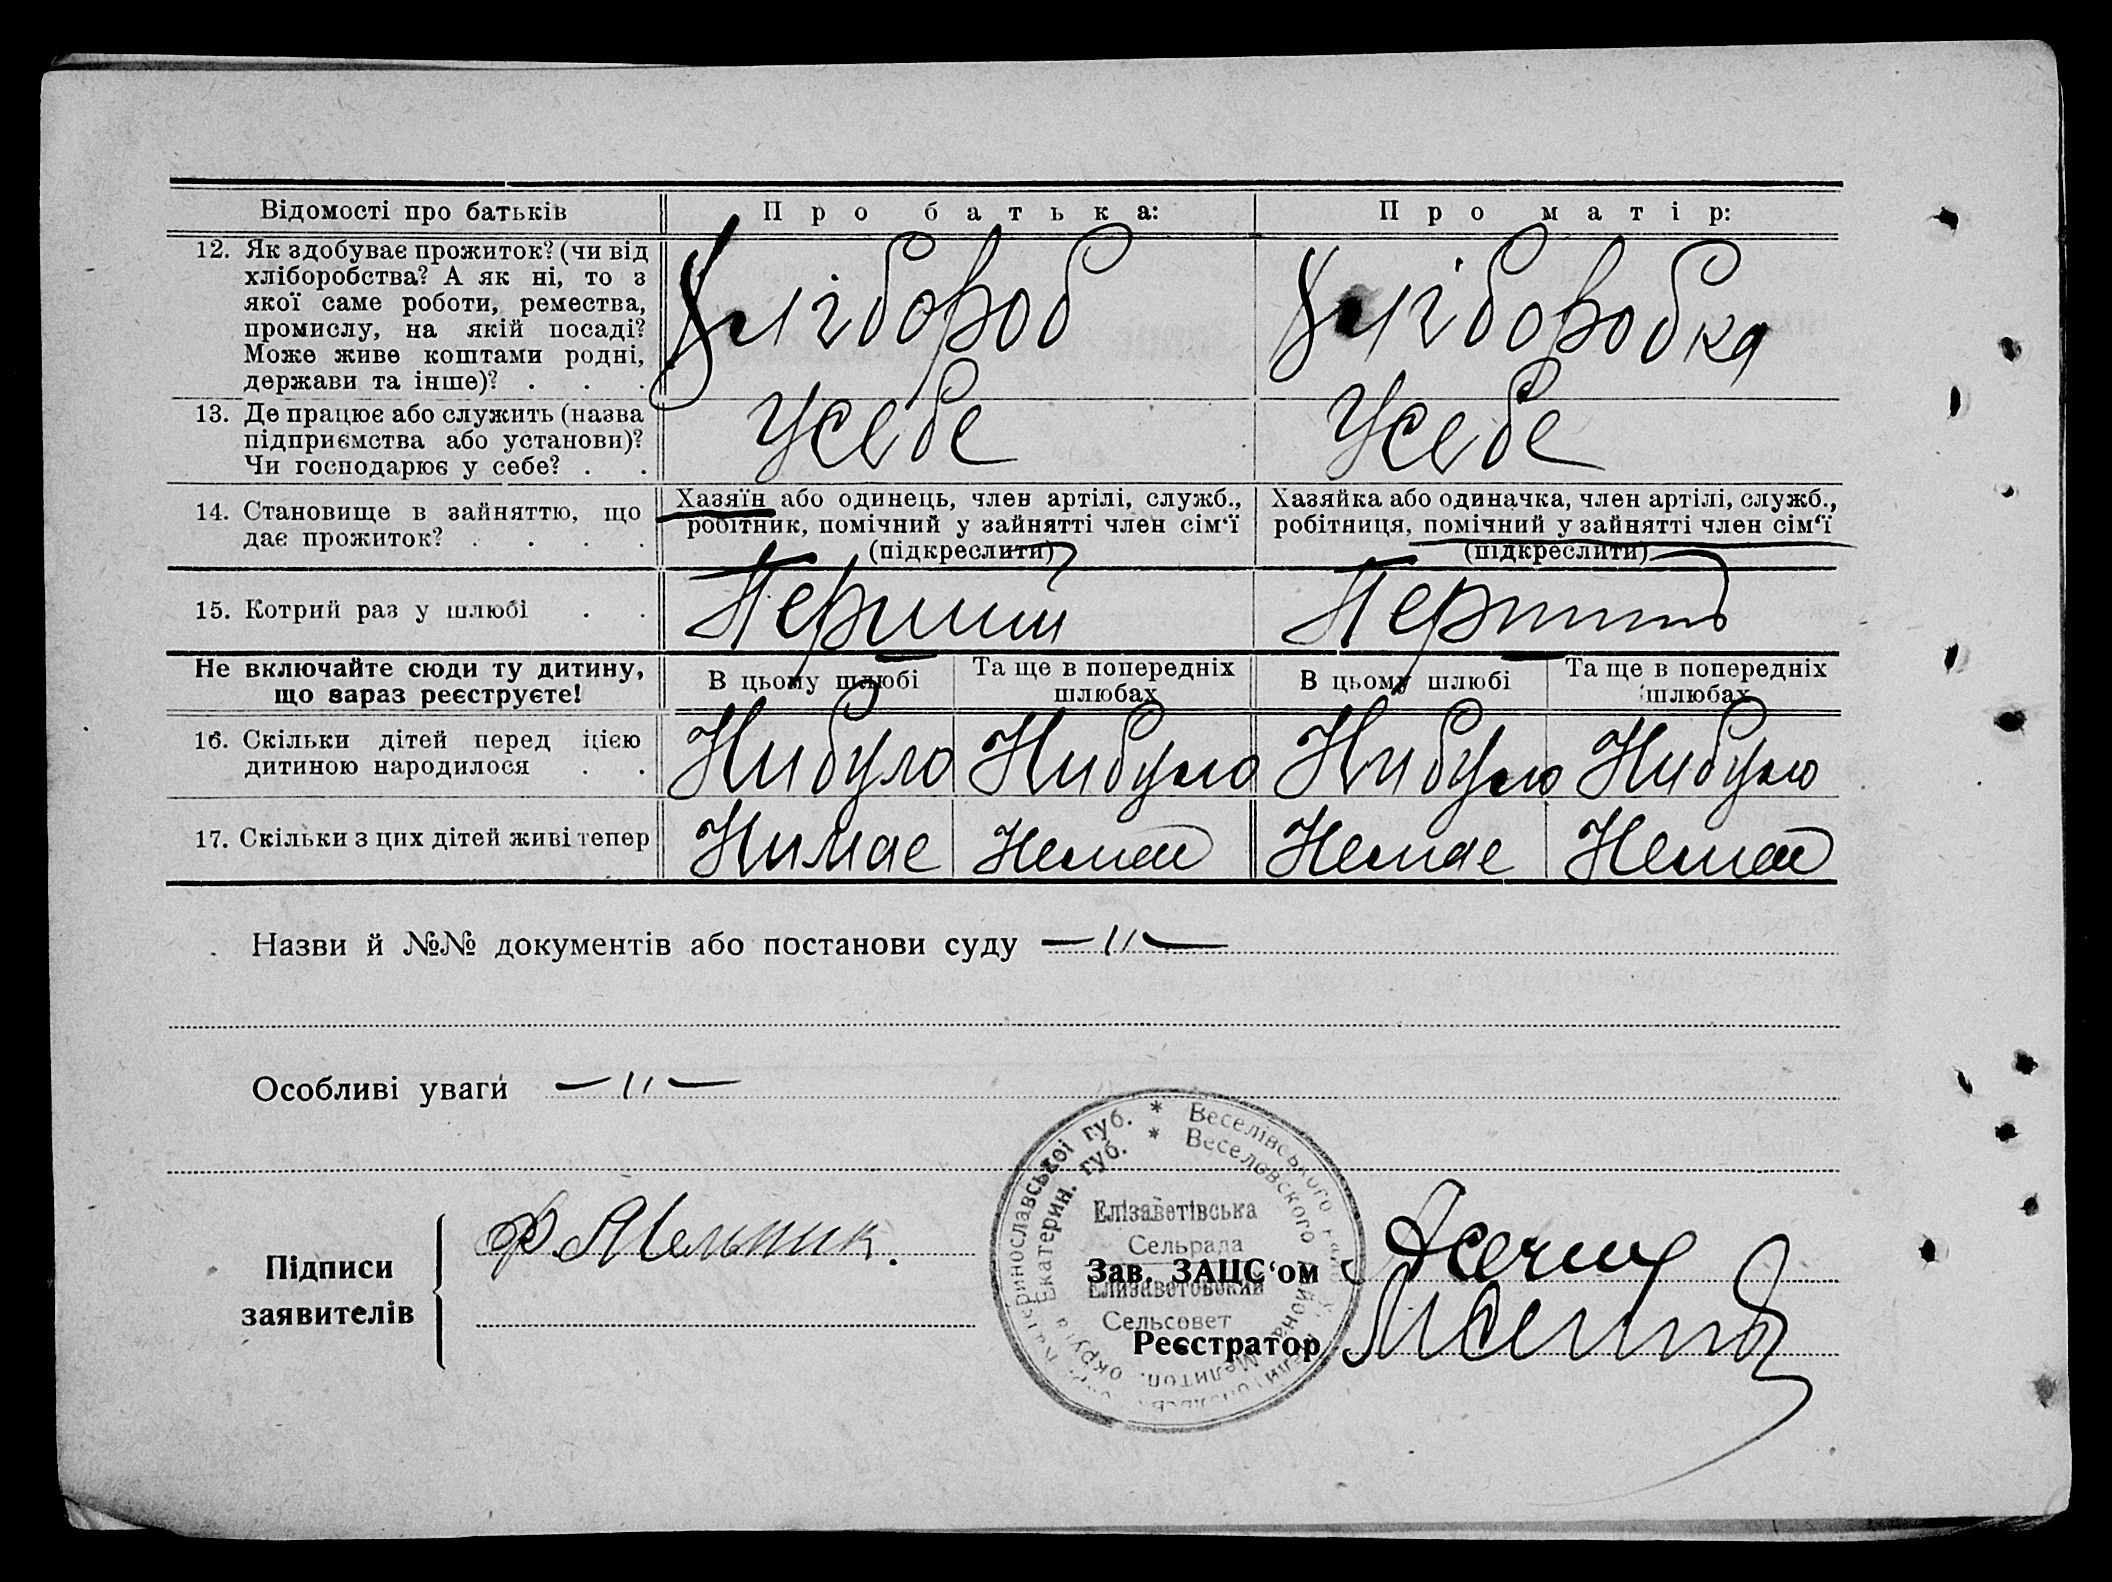 Відомості про батьків
Про батька:
Про матір:
12. Як здобуває прожиток? (чи від
хліборобства? А як ні, то з
якої саме роботи, ремества,
промислу, на якій посаді?
Може живе коштами родні,
держави та інше)? . . .
Хлібороб
Хліборобка
13. Де працює або служить (назва
підприємства або установи)?
Чи господарює у себе? . .
Усебе
Усебе
14. Становище в зайняттю, що
дає прожиток? . . . .
Хазяїн або одинець, член артілі, служб.,
робітник, помічний у зайнятті член сім'ї
(підкреслити)
Хазяйка або одиначка, член артілі, служб.,
робітниця, помічний у зайнятті член сім'ї
(підкреслити)
15. Котрий раз у шлюбі . .
Перший
Перший
Не включайте сюди ту дитину,
що зараз реєструєте!
В цьому шлюбі
Та ще в попередніх
шлюбах
В цьому шлюбі
Та ще в попередніх
шлюбах
16. Скільки дітей перед цією
дитиною народилося . .
Нибуло
Нибуло
Нибуло
Нибуло
17. Скільки з цих дітей живі тепер
Нимае
Немае
Немае
Немае
Назви й №№ документів або постанови суду —"—
Особливі уваги —"—
Підписи
заявителів
Ф. Мельник.
Зав. ЗАЦС'ом
Реєстратор
Веселівського
Веселовского
Катеринославської губ. *
Екатерин. губ. *
Мелитоп. округа
Елізаветівська
Сельрада
Елизаветовский
Сельсовет